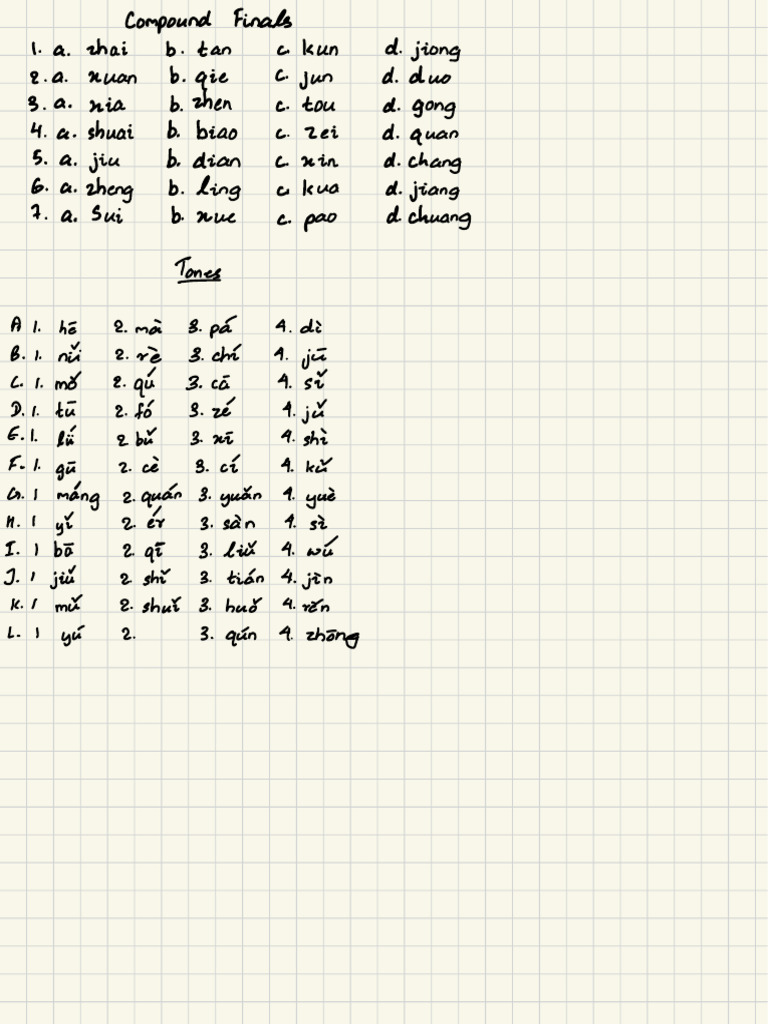 Compound Finals
1. a. zhai b. tan c. kun d. jiong
2. a. xuan b. qie c. jun d. duo
3. a. xia b. zhen c. tou d. gong
4. a. shuai b. biao c. zei d. quan
5. a. jiu b. dian c. xin d. chang
6. a. zheng b. ling c. kua d. jiang
7. a. Sui b. xue c. pao d. chuang
Tones
A 1. hē 2. mà 3. pá 4. dì
B. 1. nǚ 2. rè 3. chí 4. jū
C. 1. mǒ 2. qú 3. cā 4. sǐ
D. 1. tū 2. fó 3. zé 4. jǔ
E. 1. lǘ 2 bǔ 3. xī 4. shì
F. 1. gū 2. cè 3. cí 4. kǔ
G. 1 máng 2. quán 3. yuǎn 4. yuè
H. 1 yǐ 2. ér 3. sàn 4. sì
I. 1 bā 2. qī 3. liǔ 4. wú
J. 1 jiǔ 2 shǐ 3. tián 4. jìn
K. 1 mǔ 2. shuǐ 3. huǒ 4. rěn
L. 1 yú 2. 3. qún 4. zhōng